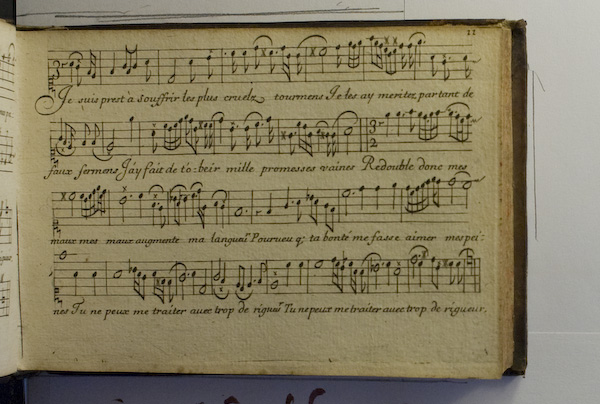 11
Je suis prest à souffrir les plus cruelz tourmens Je les ay meritez par tant de
faux sermens J'ay fait de t'o-beir mille promesses vaines Redouble donc mes
maux mes maux augmente ma langueur Pourueu q; ta bonté me fasse aimer mes pei-
nes Tu ne peux me traiter auec trop de rigueur Tu ne peux me traiter auec trop de rigueur.